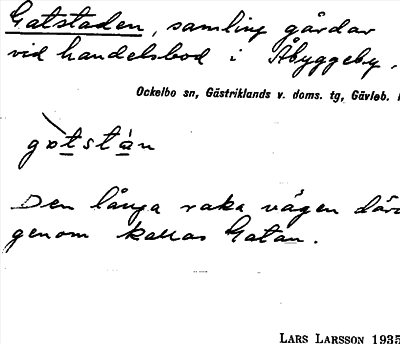 Gatstaden, samling gårdar
vid handelsbod i Åbyggeby.
Ockelbo sn, Gästriklands v. doms. tg, Gävleb.
gɒtstán
Den långa raka vägen där
genom kallas Gatan.
LARS LARSSON 1935